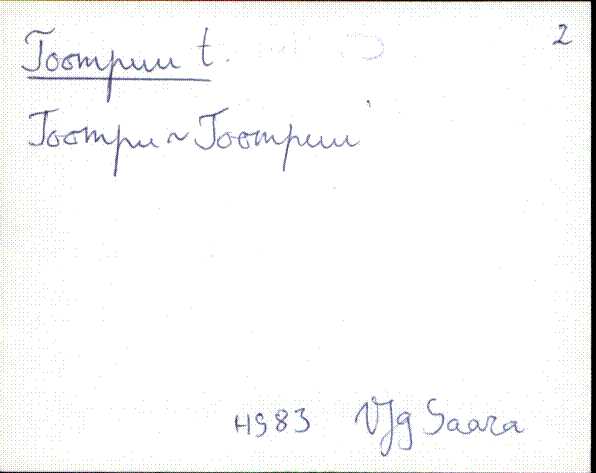 2
Toompuu t.
Toompu ~ Toompuu
HS83 VJg Saara